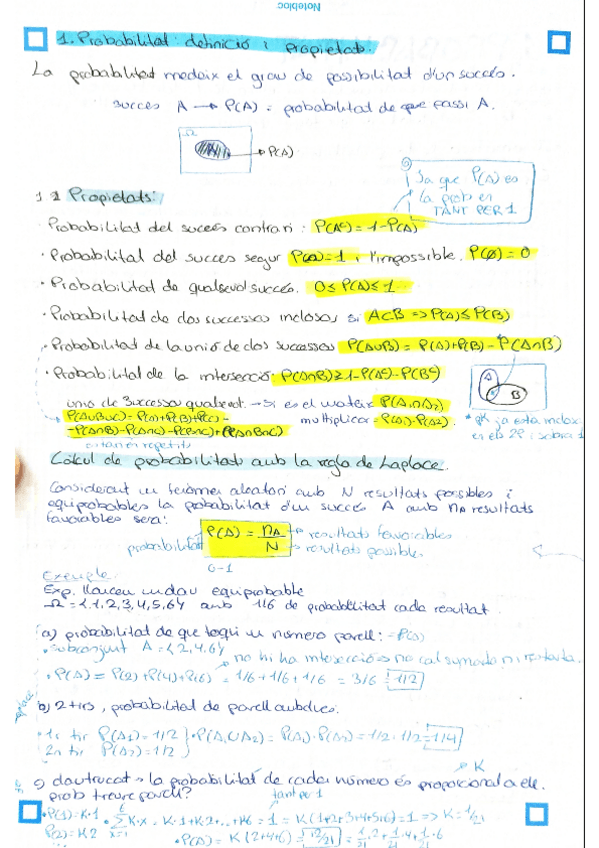 Notebloc
1. Probabilitat: definició i propietats.
La probabilitat medeix el grau de possibilitat d'un succés.
succés A → P(A) = probabilitat de que passi A.
Ω
→ P(A)
Ja que P(A) és
la prob en
TANT PER 1
Propietats:
· Probabilitat del succés contrari : P(Aᶜ) = 1 - P(A)
· Probabilitat del succes segur P(Ω) = 1 i l'impossible. P(Ø) = 0
· Probabilitat de qualsevol succés. 0 ≤ P(A) ≤ 1
· Probabilitat de dos successos inclosos, si A⊂B => P(A) ≤ P(B)
· Probabilitat de la unió de dos successos P(A∪B) = P(A) + P(B) - P(A∩B)
· Probabilitat de la intersecció: P(A∩B) ≥ 1 - P(Aᶜ) - P(Bᶜ)
A
B
P(A∪B∪C) = P(A)+P(B)+P(C) -
- P(A∩B) - P(A∩C) - P(B∩C) + P(A∩B∩C)
multiplica = P(A₁)·P(A₂).
Càlcul de probabilitats amb la regla de Laplace.
Considerant un fenòmen aleatori amb N resultats possibles i
equiprobables la probabilitat d'un succés A amb nA resultats
favorables serà:
P(A) = nA / N
→ resultats favorables
→ resultats possibles
probabilitat
0-1
Exemple:
Exp. llancem un dau equiprobable
Ω = {1,2,3,4,5,6} amb 1/6 de probabilitat cada resultat.
(a) probabilitat de que toqui un número parell: -P(A)
· subconjunt A = {2,4,6}
no hi ha intersecció => no cal sumar-la ni restar-la.
· P(A) = P(2)+P(4)+P(6) = 1/6 + 1/6 + 1/6 = 3/6 = 1/2
b) 2 tirs, probabilitat de parell
· 1r tir P(A₁) = 1/2
2n tir P(A₂) = 1/2
= P(A₁)·P(A₂) = 1/2 · 1/2 = 1/4
K
c) dau trucat → la probabilitat de cada número és proporcional a ell.
prob treure parell?
tant per 1
· P(1) = K·1
P(2) = K2
· Σ K·x = K·1 + K·2 + ... + K6 = 1 = K(1+2+3+4+5+6) = 1 => K = 1/21
· P(A) = K(2+4+6) = 12/21 = 1/21·2 + 1/21·4 + 1/21·6